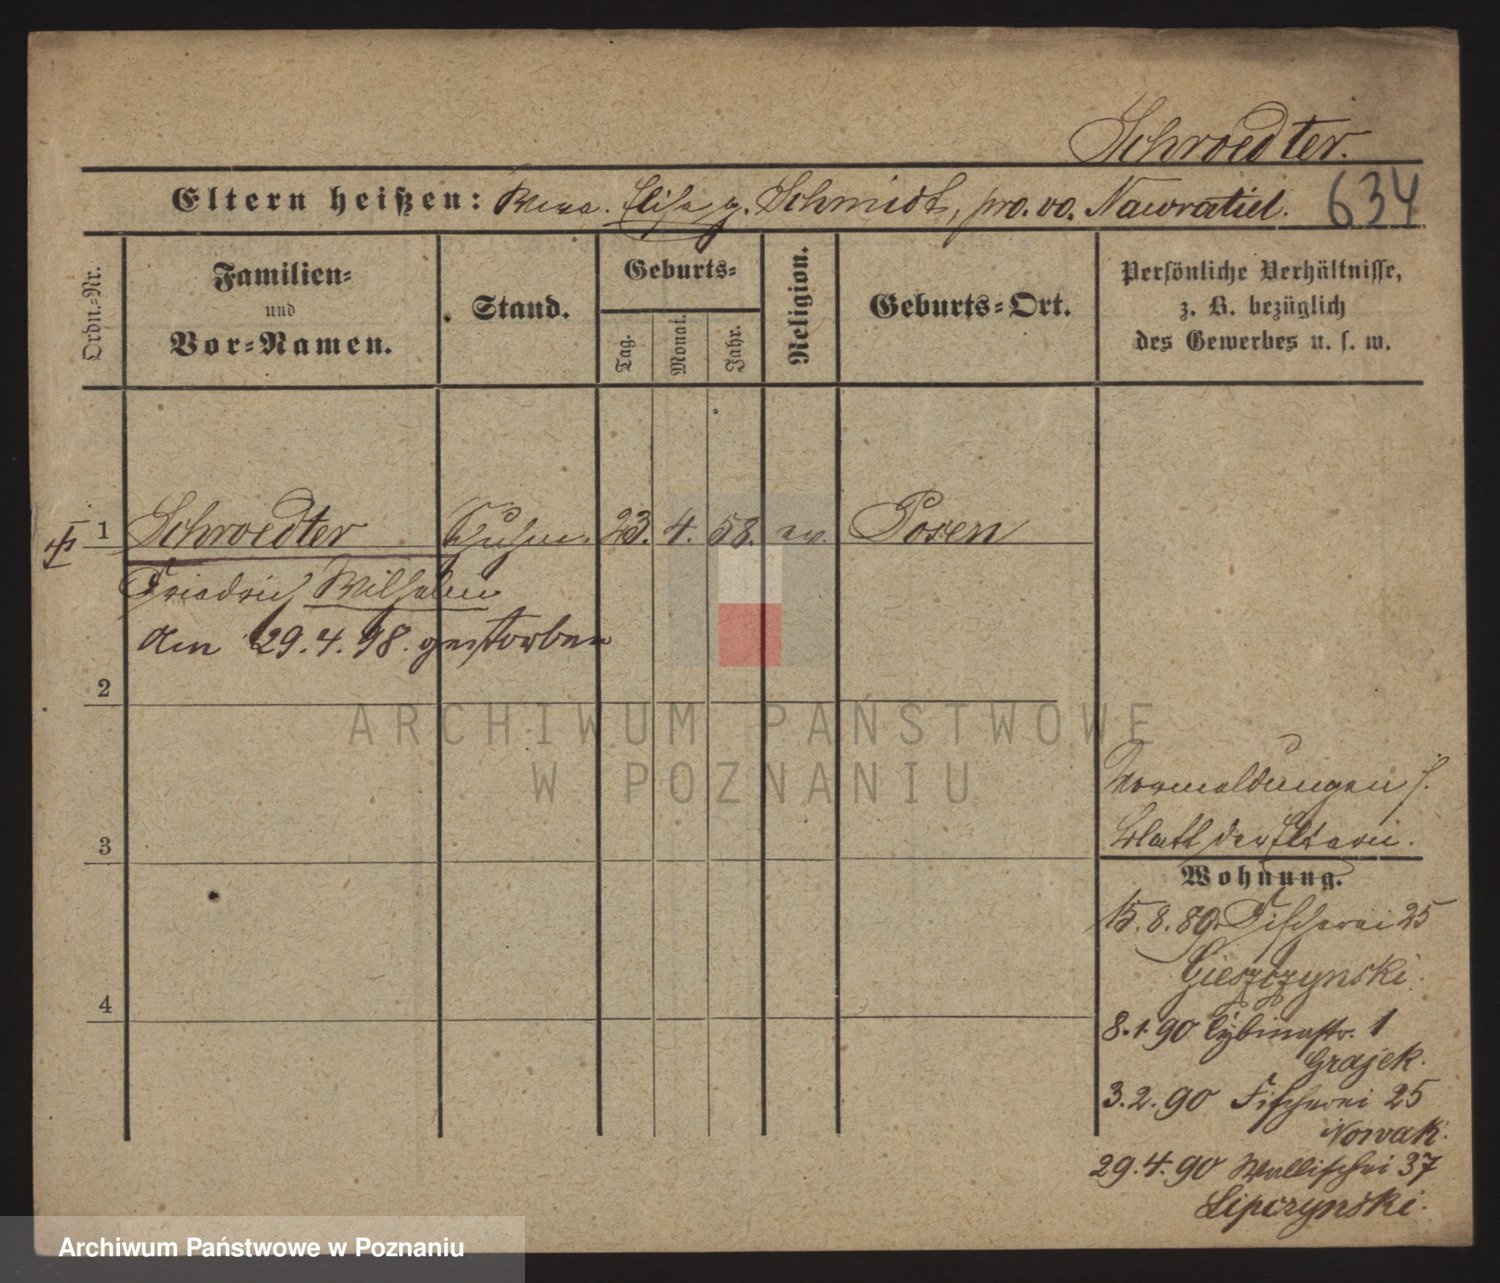 Schroedter.
Eltern heißen: Wwe. Elise g. Schmidt, pro. vo. Nawratiel. 634
Ordn.-Nr.
Familien-
und
Vor-Namen.
Stand.
Geburts-
Tag.
Monat.
Jahr.
Religion.
Geburts-Ort.
Persönliche Verhältnisse,
z. B. bezüglich
des Gewerbes u. s. w.
1 Schroedter 23. 4. 58. ev. Posen
Friedrich Wilhelm
Am 29.4.98. gestorben
2
ARCHIWUM PAŃSTWOWE
W POZNANIU
Vormeldungen s.
3 Blatt der Eltern.
Wohnung.
15.8.89. Fischerei 25
Gieszczynski.
4
8.1.90 Cybinastr. 1
Grajek.
3.2.90 Fischerei 25
Nowak.
29.4.90 Wallischei 37
Lipczynski.
Archiwum Państwowe w Poznaniu